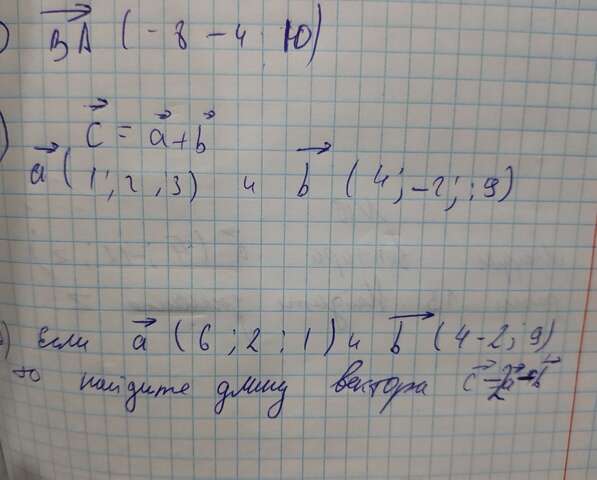 ) BA (-8 -4 10)
) c = a+b
a (1; 2, 3) и b (4; -2; ; 9)
) Если a (6; 2; 1) и b (4-2; 9)
то найдите длину вектора c